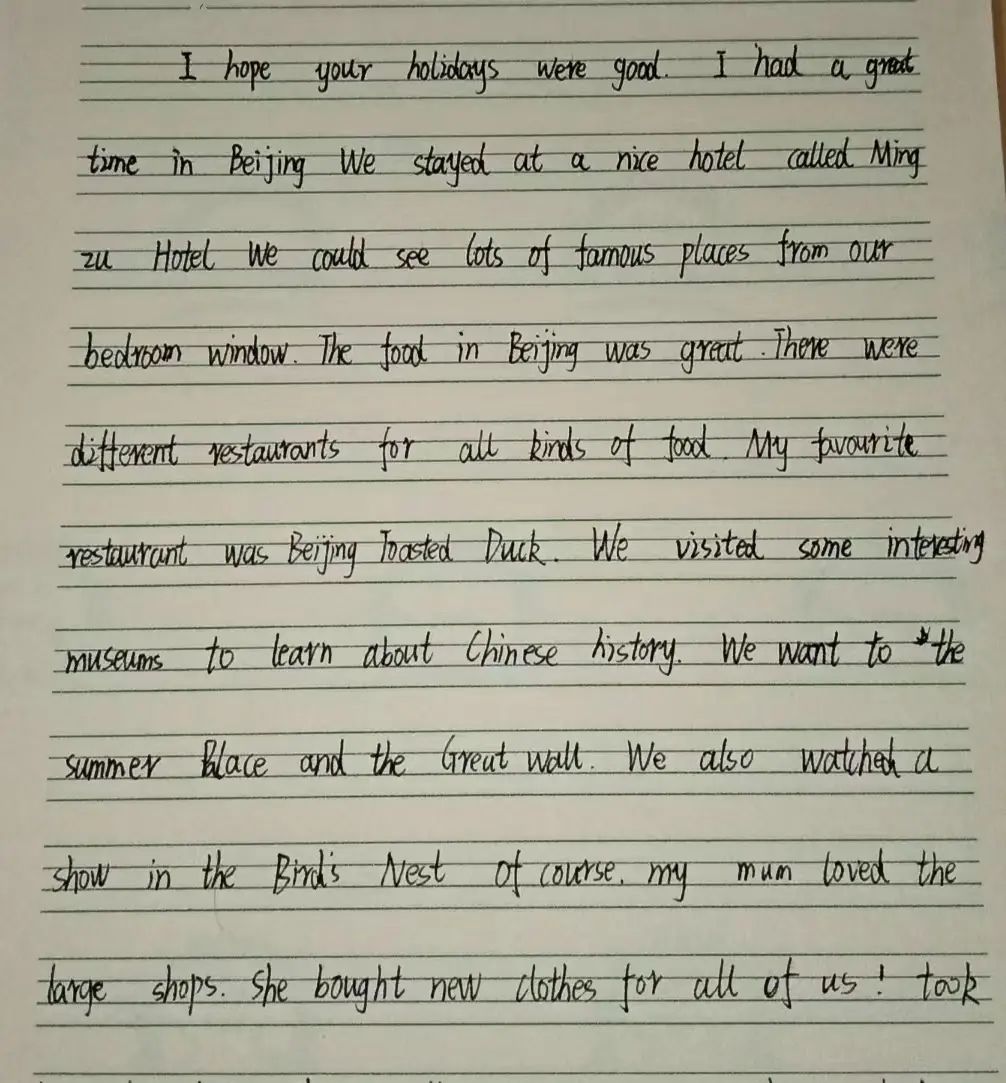 I hope your holidays were good. I had a great
time in Beijing We stayed at a nice hotel called Ming
zu Hotel We could see lots of famous places from our
bedroom window. The food in Beijing was great. There were
different restaurants for all kinds of food. My favourite
restaurant was Beijing Toasted Duck. We visited some interesting
museums to learn about Chinese history. We want to the
summer Place and the Great wall. We also watched a
show in the Bird's Nest Of course. my mum loved the
large shops. She bought new clothes for all of us! took